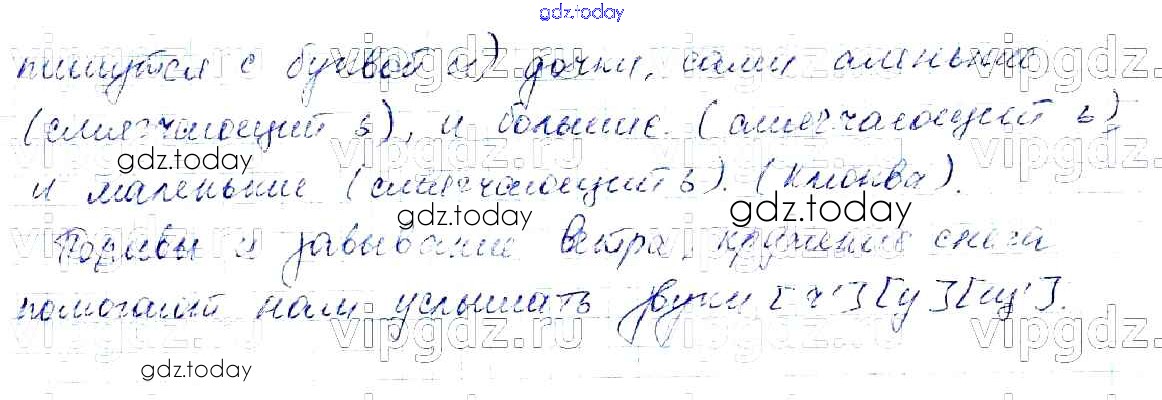 gdz.today
пишутся с буквой и) дочки, сами аленькие
(смягчающий ь), и большие. (смягчающий ь)
и маленькие (смягчающий ь). (клюква).
gdz.today
gdz.today
gdz.today
Порывы и завывание ветра, кружение снега
помогают нам услышать звуки [ч'] [у] [щ'].
gdz.today